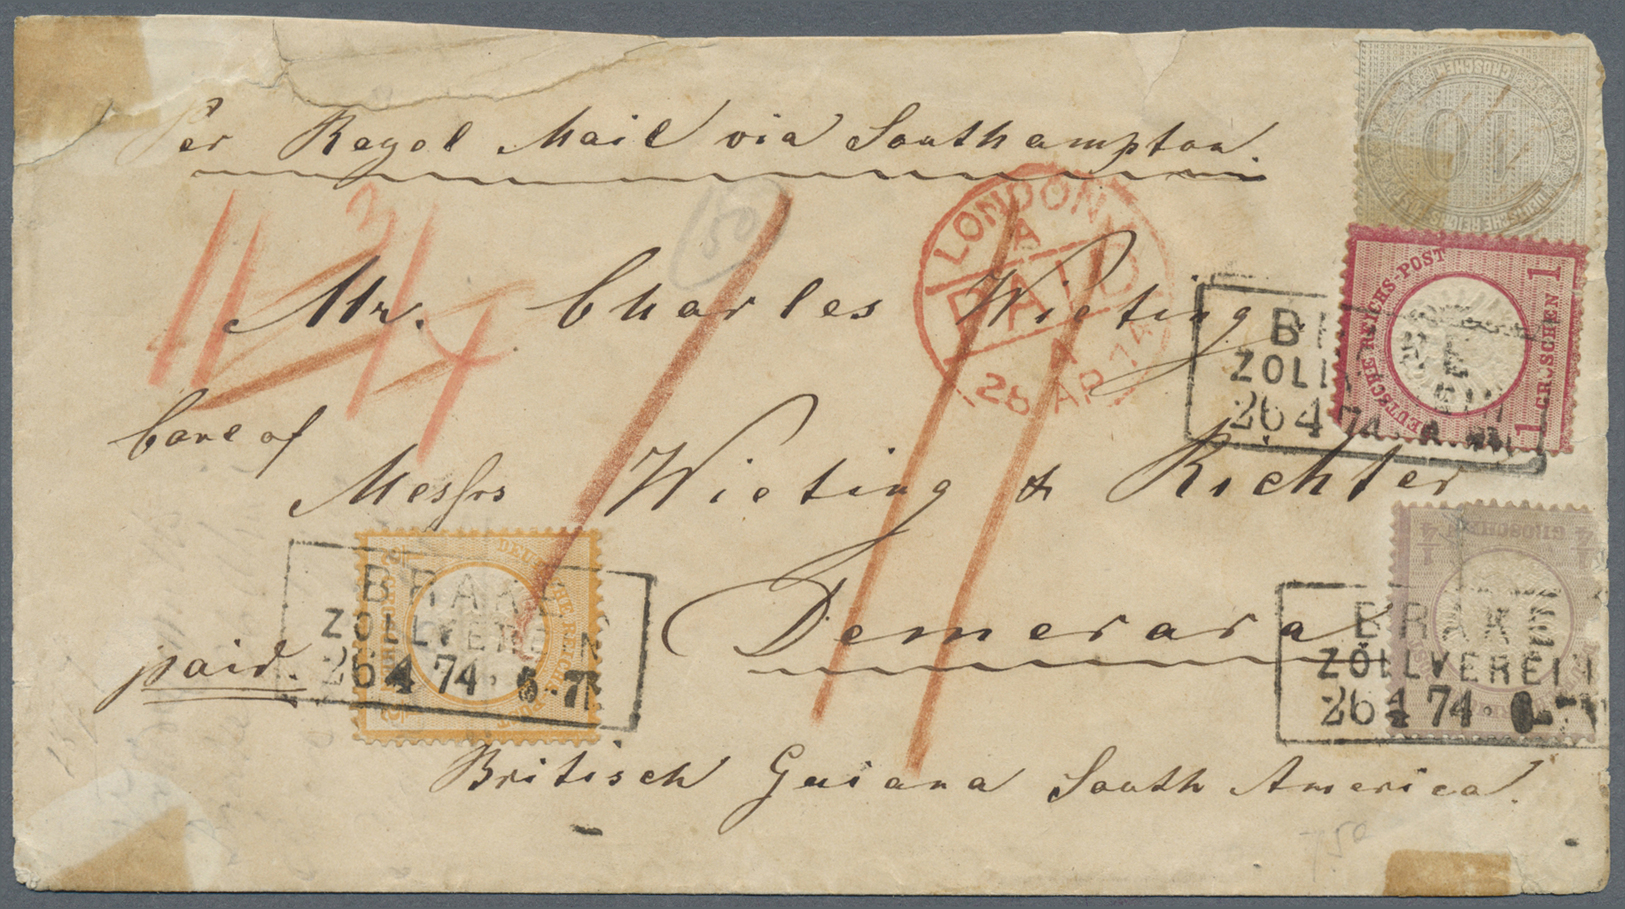 Per Regol Mail via Southampton.
11 3/4
150
Mr. Charles Wieting
Care of
Messrs Wieting & Richter
Demerara
paid.
Britisch Guiana South America.
LONDON
A
PAID
28 AP 74
10
GROSCHEN
DEUTSCHE REICHS-POST
1 GROSCHEN 1
BRAKE
ZOLLVEREIN
26 4 74
1/4 GROSCHEN 1/4
BRAKE
ZOLLVEREIN
26 4 74
DEUTSCHE REICHS-POST
BRAKE
ZOLLVEREIN
26 4 74 · 6-7
750